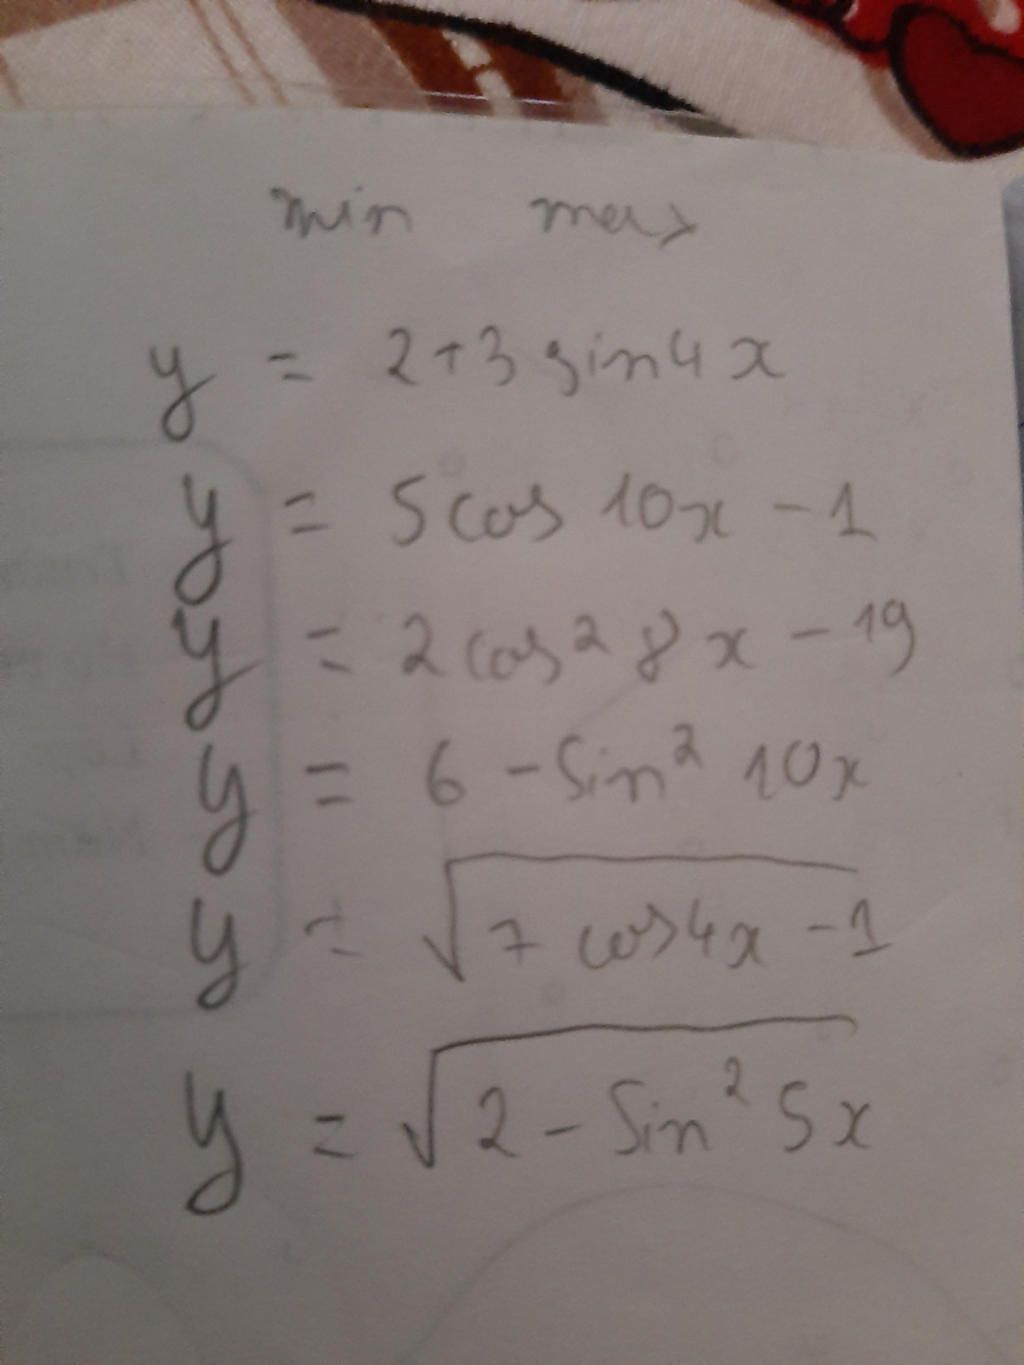 min max
y = 2+3 sin4x
y = 5cos 10x - 1
y = 2cos² 8x - 19
y = 6 - sin² 10x
y = √7 cos4x - 1
y = √2 - sin² 5x